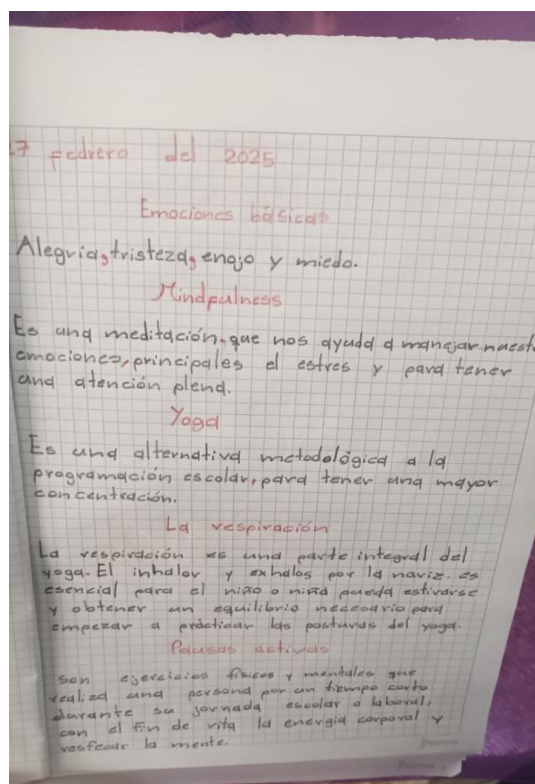 17 Fedrero del 2025
Emociones básicas
Alegria, tristeza, enojo y miedo.
Mindfulness
Es una meditación, que nos ayuda a manejar nuest
emociones, principales el estres y para tener
una atención plena.
Yoga
Es una alternativa metodológica a la
programación escolar, para tener una mayor
concentración.
La respiración
La respiración es una parte integral del
yoga. El inhalor y exhalos por la nariz. es
esencial para el niño o niña pueda estirarse
y obtener un equilibrio necesario para
empezar a prácticar las posturas del yoga.
Pausas activas
son ejercicios físicos y mentales que
realiza una persona por un tiempo corto
durante su jornada escolar o laboral,
con el fin de vita la energía corporal y
la mente.